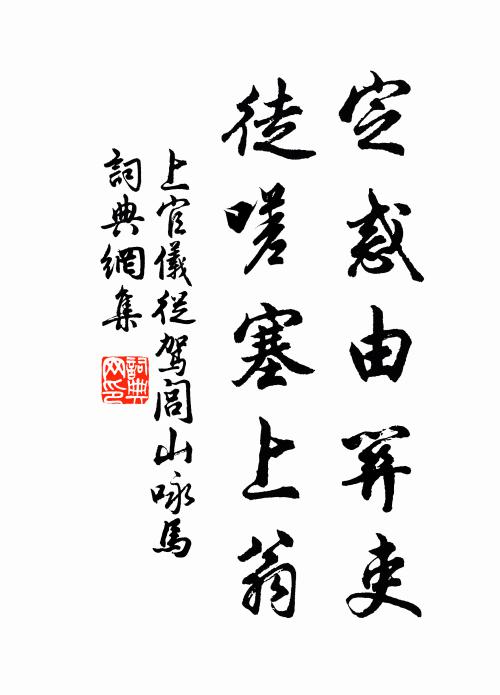 定惑由關吏
徒嗟塞上翁
上官儀從駕閭山咏馬
詞典網集
詞典
網印